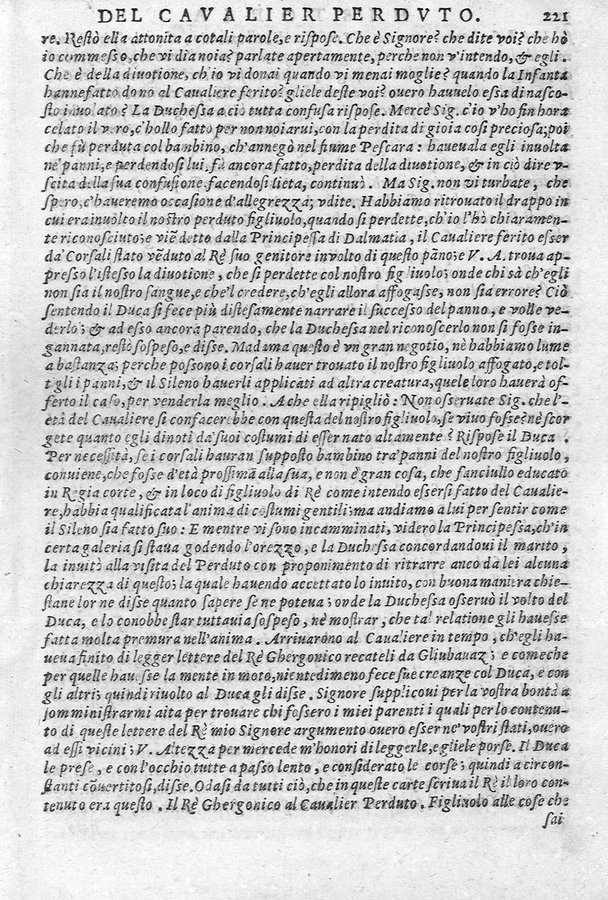 DEL CAVALIER PERDVTO. 221
re. Restò ella attonita a cotali parole, e rispose. Che è Signore? che dite voi? che hò
io commesso, che vi dia noia? parlate apertamente, perche non v'intendo, & egli.
Che è della diuotione, ch'io vi donai quando vi menai moglie? quando la Infanta
hannefatto dono al Caualiere ferito? gliele deste voi? ouero hauuelo essa di nasco-
sto inuolato? La Duchessa a ciò tutta confusa rispose. Mercè Sig. c'io v'ho fin hora
celato il vero, c'hollo fatto per non noiarui, con la perdita di gioia cosi preciosa; poi
che fù perduta col bambino, ch'annegò nel fiume Pescara: haueuala egli inuolta
ne' panni, e perdendosi lui, fù ancora fatto, perdita della diuotione, & in ciò dire v-
scita della sua confusione, facendosi lieta, continuò. Ma Sig. non vi turbate, che
spero, c'haueremo occasione d'allegrezza; vdite. Habbiamo ritrouato il drappo in
cui era inuolto il nostro perduto figliuolo, quando si perdette, ch'io l'hò chiaramen-
te riconosciuto; e viẽ detto dalla Principessa di Dalmatia, il Caualiere ferito esser
da' Corsali stato vẽduto al Rè suo genitore inuolto di questo pãno; e V. A. troua ap-
presso l'istesso la diuotione, che si perdette col nostro figliuolo; onde chi sà ch'egli
non sia il nostro sangue, e che'l credere, ch'egli allora affogasse, non sia errore? Ciò
sentendo il Duca si fece più distesamente narrare il successo del panno, e volle ve-
derlo; & ad esso ancora parendo, che la Duchessa nel riconoscerlo non si fosse in-
gannata, restò sospeso, e disse. Madama questo è vn gran negotio, nè habbiamo lume
a bastanza; perche possono i corsali hauer trouato il nostro figliuolo affogato, e tol-
tigli i panni, & il Sileno hauerli applicati ad altra creatura, quele loro hauerà of-
ferto il caso, per venderla meglio. A che ella ripigliò: Non osseruate Sig. che l'e-
tà del Caualiere si confacerebbe con questa del nostro figliuolo, se viuo fosse? nè scor
gete quanto egli dinoti da' suoi costumi di esser nato altamente? Rispose il Duca.
Per necessità, se i corsali hauran supposto bambino tra' panni del nostro figliuolo,
conuiene, che fosse d'età prossimã alla sua, e non è gran cosa, che fanciullo educato
in Regia corte, & in loco di figliuolo di Rè come intendo essersi fatto del Caualie-
re, habbia qualificata l'anima di costumi gentili; ma andiamo a lui per sentir come
il Sileno sia fatto suo: E mentre vi sono incamminati, videro la Principessa, ch'in
certa galeria si staua godendo l'orezzo, e la Duchessa concordandoui il marito,
la inuitò alla visita del Perduto con proponimento di ritrarre anco da lei alcuna
chiarezza di questo; la quale hauendo accettato lo inuito, con buona maniera chie-
stane lor ne disse quanto sapere se ne poteua; onde la Duchessa osseruò il volto del
Duca, e lo conobbe star tuttauia sospeso, nè mostrar, che tal relatione gli hauesse
fatta molta premura nell'anima. Arriuarono al Caualiere in tempo, ch'egli ha-
ueua finito di legger lettere del Rè Ghergonico recateli da Gliubauaz; e comeche
per quelle hauesse la mente in moto, nientedimeno fece sue creanze col Duca, e con
gli altri; quindi riuolto al Duca gli disse. Signore supplicoui per la vostra bontà a
somministrarmi aita per trouare chi fossero i miei parenti i quali per lo contenu-
to di queste lettere del Rè mio Signore argumento ouero esser ne' vostri stati, ouero
ad essi vicini; V. Altezza per mercede m'honori di leggerle, e gliele porse. Il Duca
le prese, e con l'occhio tutte a passo lento, e considerato le corse; quindi a circon-
stanti cõuertitosi, disse. Odasi da tutti ciò, che in queste carte scriua il Rè il loro con-
tenuto era questo. Il Rè Ghergonico al Caualier Perduto. Figliuolo alle cose che
sai